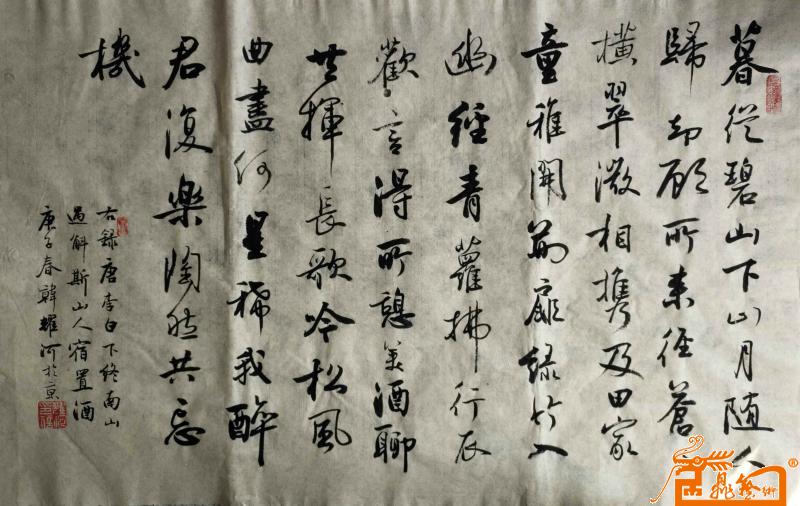 暮從碧山下山月隨人
歸却顧所来徑蒼蒼
橫翠微相攜及田家
童稚開荊扉綠竹入
幽徑青蘿拂行衣
歡言得所憩美酒聊
共揮長歌吟松風
曲盡河星稀我醉
君復樂陶然共忘
機
右錄唐李白下終南山
過斛斯山人宿置酒
庚子春韓耀河於京